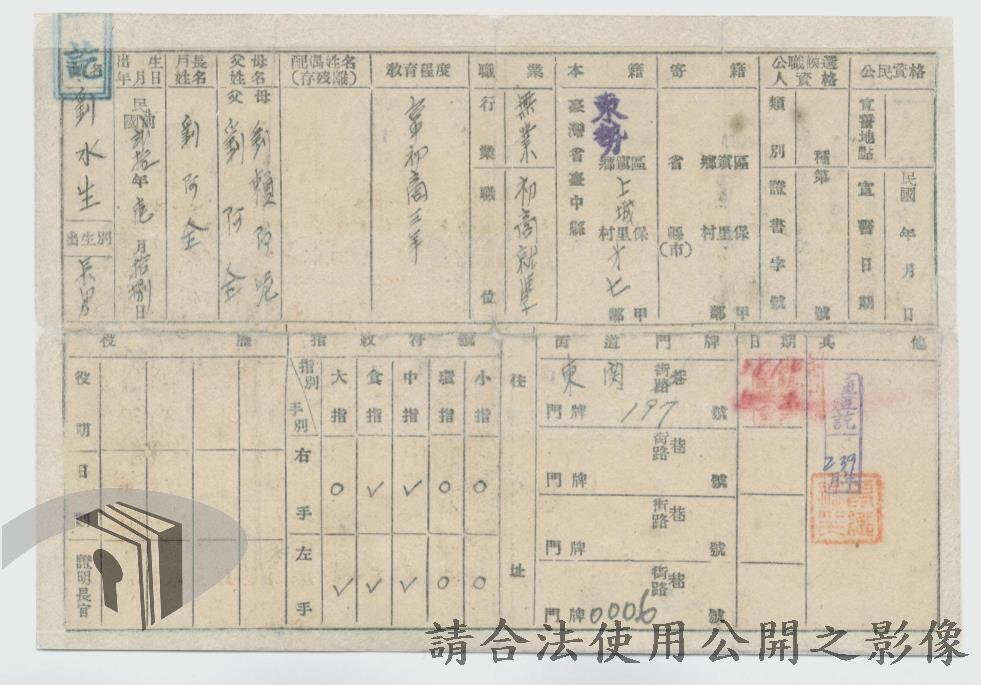 訖
姓名
劉水生
出生別
長男
出生年月日
民國前 年 月拾捌日
戶長姓名
劉阿金
父母姓名
父 劉阿金
母 劉賴阿
配偶姓名
(存歿離)
教育程度
初商三年
職業
行業 無業
職位 初商就學
本籍
臺灣省臺中縣
東勢 鄉鎮區
上城 村里保
才七 鄰甲
寄籍
省 縣(市)
鄉鎮區
村里保
鄰甲
公職候選人資格
類別 種
證書字號 第 號
公民資格
宣誓地點
宣誓日期
民國 年 月 日
役歷
役明日期
證明長官
指紋符號
指別
手別
大指
食指
中指
環指
小指
右手 ○ ✓ ✓ ○ ○
左手 ✓ ✓ ✓ ○ ○
住址
街道門牌
日期
其他
東関 街路巷
門牌 197 號
街路巷
門牌 號
街路巷
門牌 號
街路巷
門牌 0006 號
39年
2月
請合法使用公開之影像